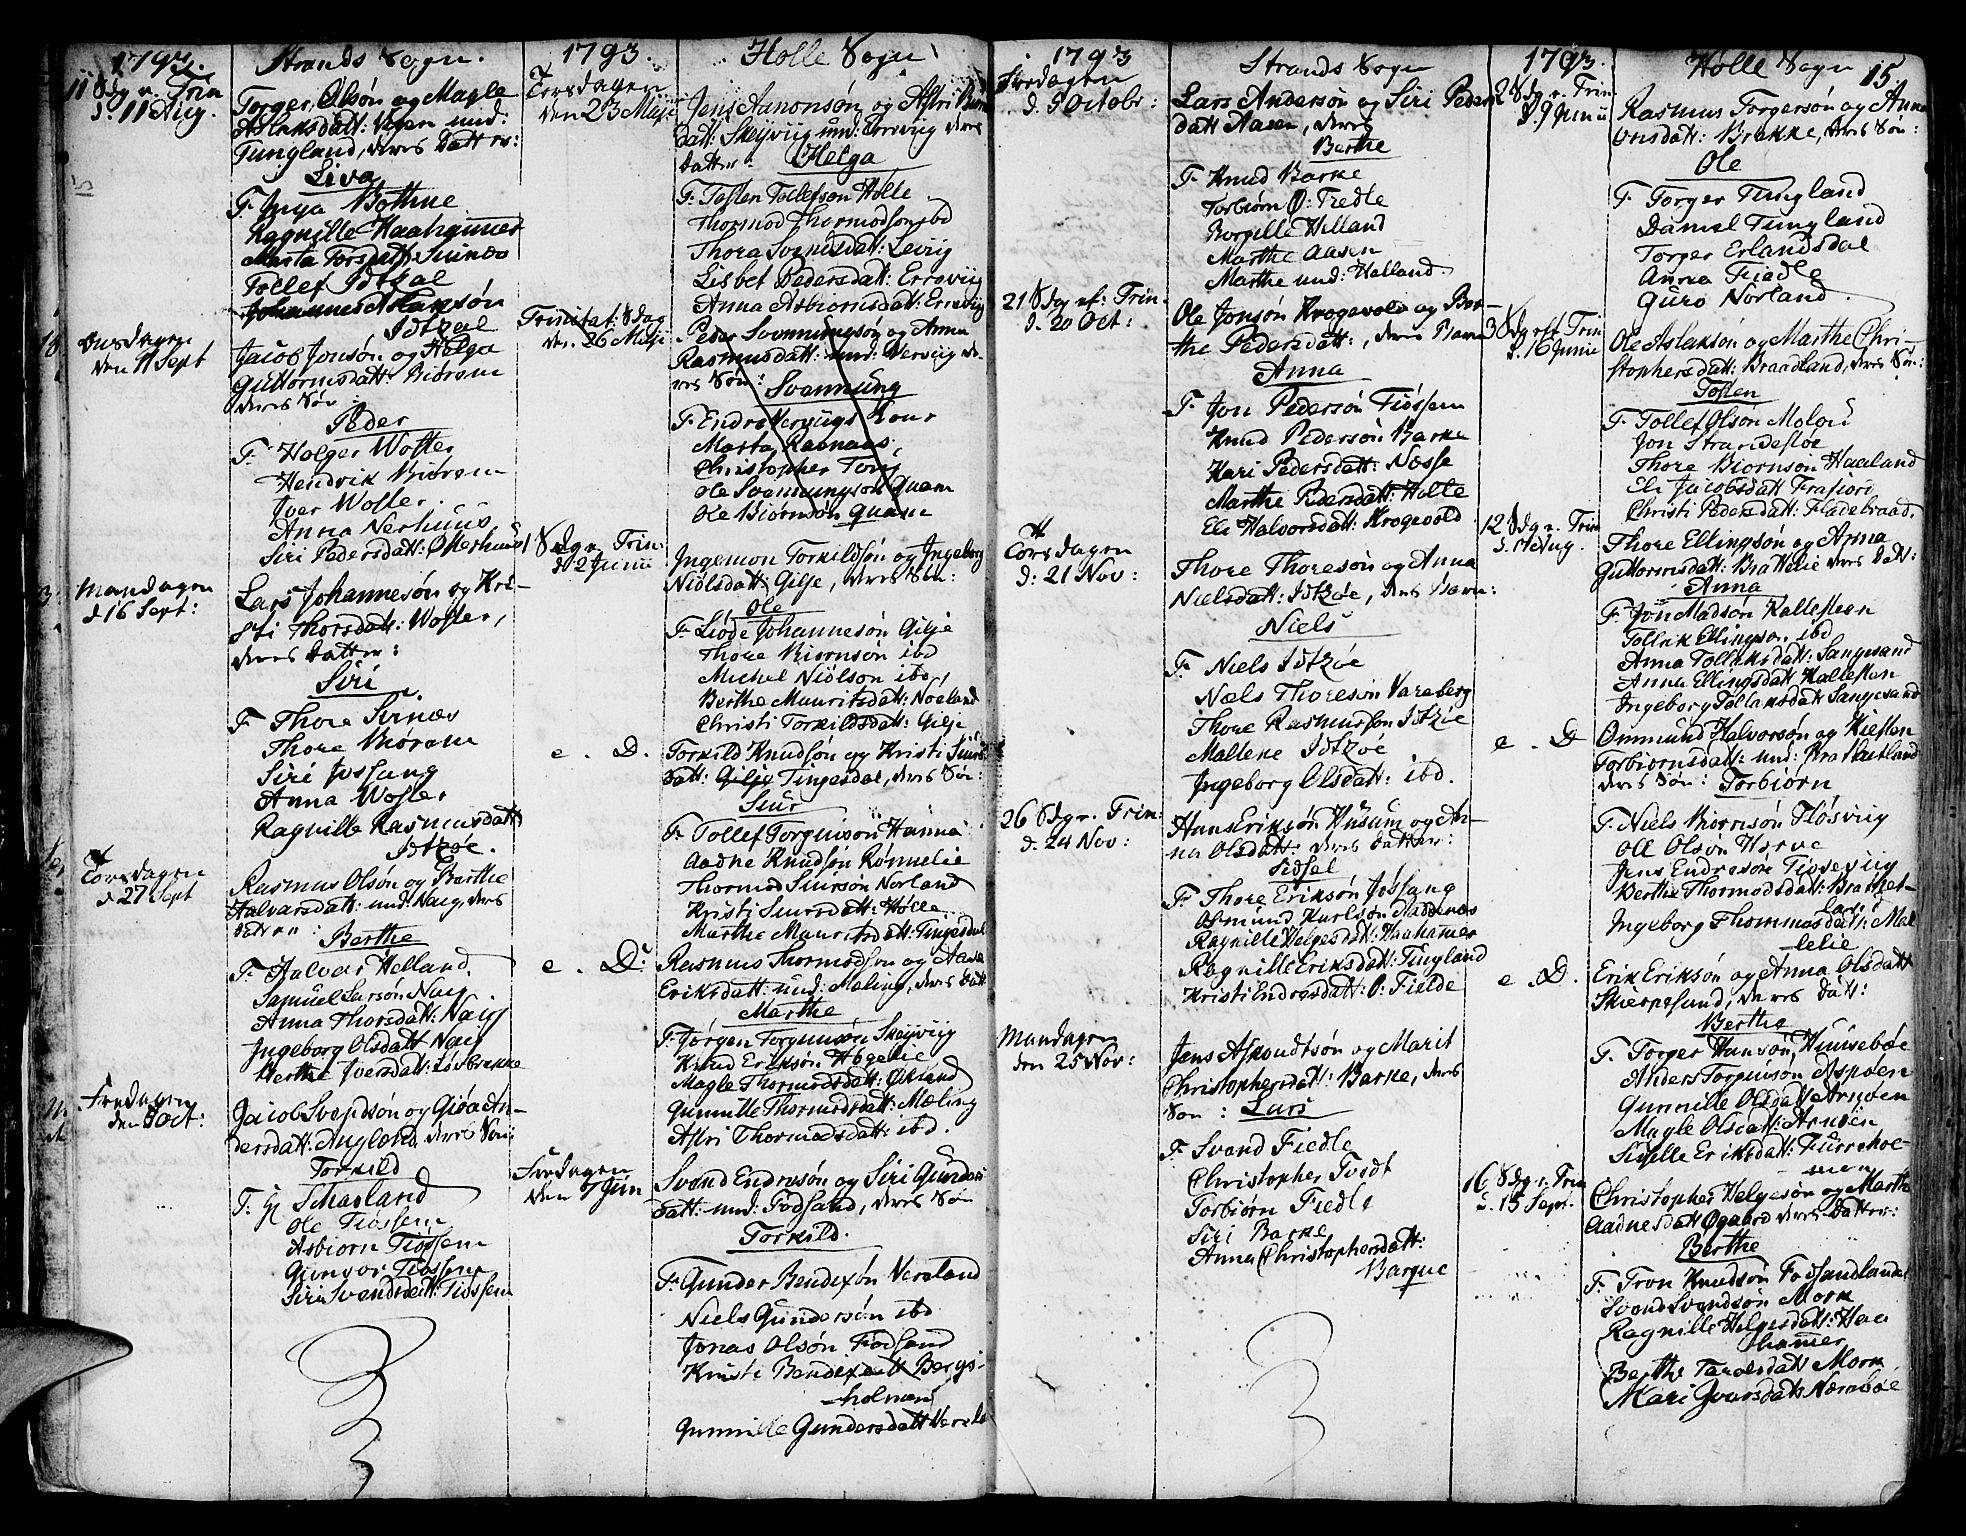 1793.
Strands Sogn.
11 Sdg e. Trin
d: 11 Aug.
Torger Olsøn og Magle
Aslaksdatt: Vegen und:
Tungland, deres Datter:
Liva
F. Inga Bothne
Ragnille Haahammer
Marta Torsdatt: Svines
Tollef Idtzal
Johannes Aslaksøn
Idtzal
Onsdagen
den 11 Sept
Jacob Jonsøn og Helga
Guttormsdatt: Biørem
deres Søn:
Peder
F. Holger Woster
Hendrik Biørem
Iver Woster.
Anna Nerhuus
Siri Pedersdatt: Østerhuus
Mandagen
d 16 Sept:
Lars Johannesøn og Kri-
sti Thorsdatt: Woster,
deres Datter:
Siri
F. Thore Sirnæs
Thore Biørem
Siri Jossang
Anna Woster
Ragnille Rasmusdatt
Idtzøe.
Torsdagen
d 27 Sept
Rasmus Olsøn og Berthe
Halvarsdatt: und: Naig, deres
Datter:
Berthe
F. Halvar Helland.
Samuel Larsøn Naig
Anna Thorsdatt: Naig
Ingeborg Olsdatt Naig
Berthe Iversdatt: Løsbrekke
Fredagen
den Oct:
Jacob Svendsøn og Giøa An-
dersdatt: Angland deres Søn:
Torkild
Ole Tiøssem
Asbiorn Tiossem
Gunvor Tiossem
Siri Svendsdatt: Tiossem
1793.
Holle Sogn
Torsdagen
den 23 Maji
Jens Amonsøn og Astri
datt: Skeiviig und: Erreviig deres
Datter: Helga
F. Tosten Tollefson Holle
Thormod Thormodson ibd
Thora Svensdatt: Levig
Lisbet Pedersdatt: Erreviig
Anna Asbiornsdatt: Erreviig
Trinitat: Sdag
den 26 Maji
Peder Svennungson og Anna
Rasmusdatt: und: Verviig de-
res Søn: Svennung
F. Endre Kerviigs Kone
Marta Ravnaas,
Christopher Torg
Ole Svennungson Quam
Ole Biørnsøn Quam
1 Sdg e. Trin
d 2 Junii
Ingemon Torkildsøn og Ingeborg
Niolsdatt: Gilje, deres Søn:
Ole
F. Liode Johannesøn Gilje
Thore Biornsøn ibd
Michel Niolson ibd
Berthe Mauritsdatt: Nøeland
Christi Torkildsdatt: Gilje
e. D.
Torkild Knudsøn og Kristi Siurs
datt: Gilje Tingesdal, deres Søn:
Siur
F. Tollef Torgerson Hanna
Aadne Knudsøn Rønnelie
Thormod Siursøn Norland
Kristi Siursdatt: Holle.
Marthe Mauritsdatt: Tingesdal
e. D:
Rasmus Thormodson og Aasa
Eriksdatt: und: Mæling, deres Datt:
Marthe
F. Jørgen Torgersøn Skeiviig
Knud Eriksøn Høgelie
Magle Thormodsdatt: Økland
Gunnille Thormodsdatt: Mæling
Astri Thormodsdatt: ibd.
Fredagen
den 7 Jun
Svend Endresøn og Siri Gunders
datt: und: Fodsand, deres Søn
Torkild.
F. Gunder Bendixøn Vereland
Niels Gundersøn ibd
Jonas Olsøn Fodsand
Kristi Bendixdatt Bergs-
holmen
Gunnille Gundersdatt Verel
1793
Strands Sogn
Fredagen
d. Octobr:
Lars Andersøn og Siri Peders
datt Aasen, deres
Berthe
F. Knud Barke
Torbiørn Ø: Fiedle
Borgille Helland
Marthe Aasen
Marthe und: Helland
21 Sdg ef: Trin.
d. 20 Oct:
Ole Jonsøn Krogevold og Ber-
the Pedersdatt:, deres Barn
Anna
F. Jon Pedersøn Tiossem
Knud Pedersøn Barke
Kari Pedersdatt: Næsse
Marthe Pedersdatt: Holte
Eli Halvorsdatt: Krogevold
Torsdagen
d: 21 Nov:
Thore Thoresøn og Anna
Nielsdatt: Idtzøe, deres Barn:
Niels
F. Niels Idtzøe
Næls Thoresøn Vareberg
Thore Rasmusson Idtzøe
Mallene Idtzøe
Ingeborg Olsdatt: ibd.
26 Sdg e. Trin:
d. 24 Nov:
Hans Eriksøn Husum og An-
na Olsdatt: deres Datter:
Sidsel
F. Thore Eriksøn Jossang
Osmund Karlsøn Addenes
Ragnille Helgesdatt: Haahamer
Ragnille Eriksdatt: Tungland
Kristi Endresdatt: Ø: Fielde
Mandagen
den 25 Nov:
Jens Asmundtsøn og Marit
Christophersdatt: Barke, deres
Søn: Lars
F. Svend Fiedle
Christopher Tvedt
Torbiørn Fiedle
Siri Barke
Anna Christophersdatt:
Barque
1793.
Holle Sogn
15.
2 Sdg e. Trin.
d 9 Junii
Rasmus Torgersøn og Anna
onsdatt: Brekke, deres Søn:
Ole
F. Torger Tungland
Daniel Tungland
Torger Erlandsdal
Anna Fiedle
Guro Norland.
3 Sdg eft Trin
d. 16 Junii
Ole Aslaksøn og Marthe Chri-
stophersdatt: Braadland, deres Søn:
Tosten
F. Tollef Olsøn Molou
Jon Strandesloe
Thore Biornsøn Haaland
Eli Jacobsdatt Frafiord
Christi Pedersdatt: Fladebraad.
12 Sdg e. Trin
d. Aug.
Thore Ellingsøn og Anna
Guttormsdatt: Brattelie deres Datt:
Anna
F. Jon Madsøn Kallesteen
Tollak Ellingson ibd
Anna Tollaksdatt: Sangesand
Anna Ellingsdatt Kallesten
Ingeborg Tollaksdatt Sangesand
e. D
Ommund Halvorsøn og Kiesten
Torbiornsdatt: und: Brattetland
deres Søn: Torbiorn
F. Niels Biornsøn Fløsviig
Ole Olson Herve
Jens Endresøn Tiosseviig
Berthe Thormodsdatt: Brattet-
land
Ingeborg Thommasdatt: Mal
lelie
e. D.
Erik Eriksøn og Anna Olsdatt
Skierpesund, deres Datt:
Berthe
F. Torger Hansøn Huusebøe
Anders Torgersøn Aspøen
Gunnille Olsdatt Arnøen
Magle Olsdatt: Arnøen
Sigille Eriksdatt: Furrehoe-
men
16 Sdg e. Trin
d. 15 Sept.
Christopher Helgesøn og Marthe
Aadnesdatt Øgaard deres Datter:
Berthe
F. Tron Knudsøn Fodsandland
Svend Svendsøn Mork
Ragnille Helgesdatt: Haa
hammer
Berthe Taralsdatt Mork
Mari Gvarsdatt Nærebøe